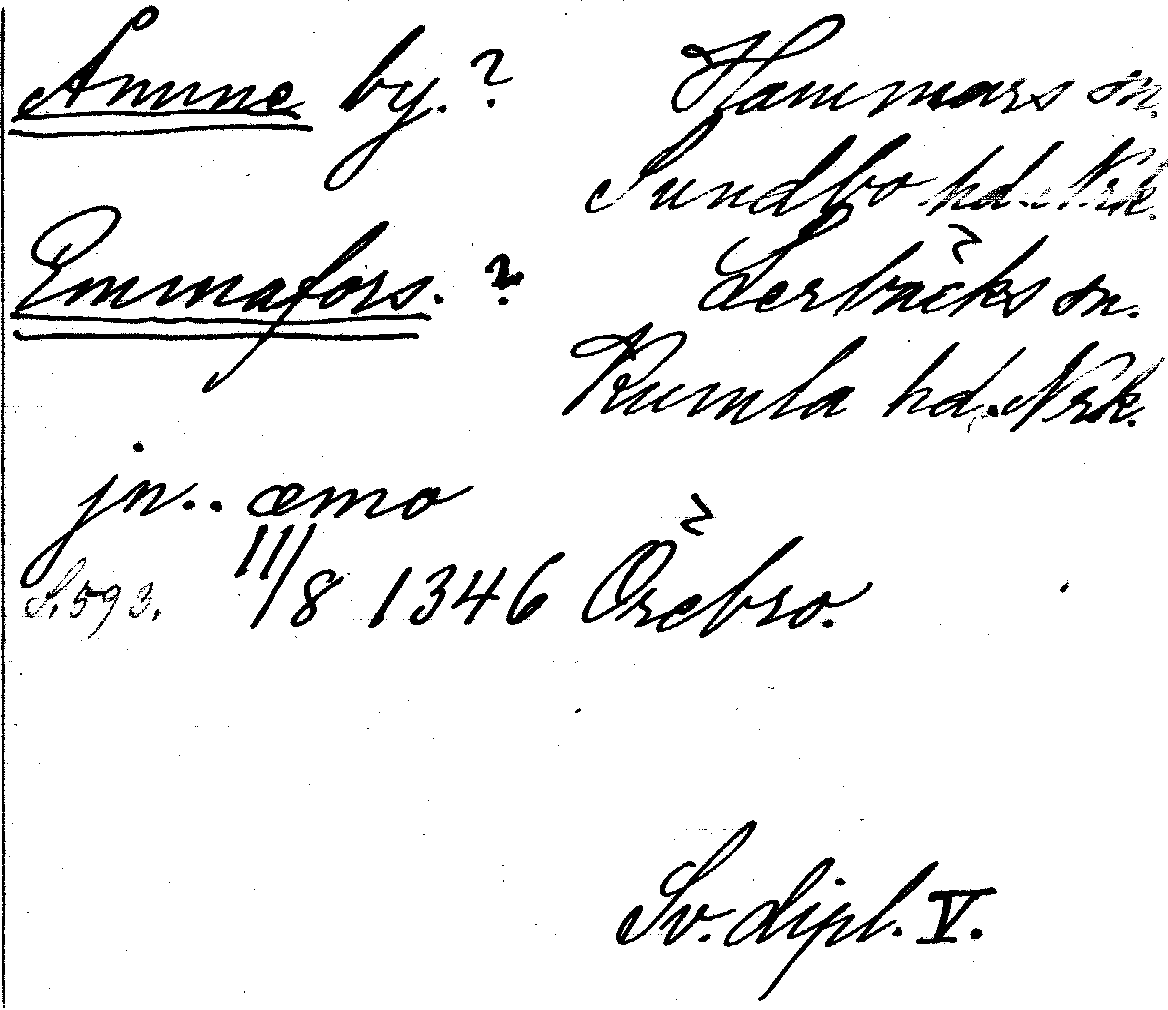 Amme by.? Hammars sn.
Sundbo hd. Nrk.
Emmafors. ? Lerbäcks sn.
Kumla hd. Nrk.
jn.. æmo
S. 593. 11/8 1346 Örebro.
Sv. dipl. V.